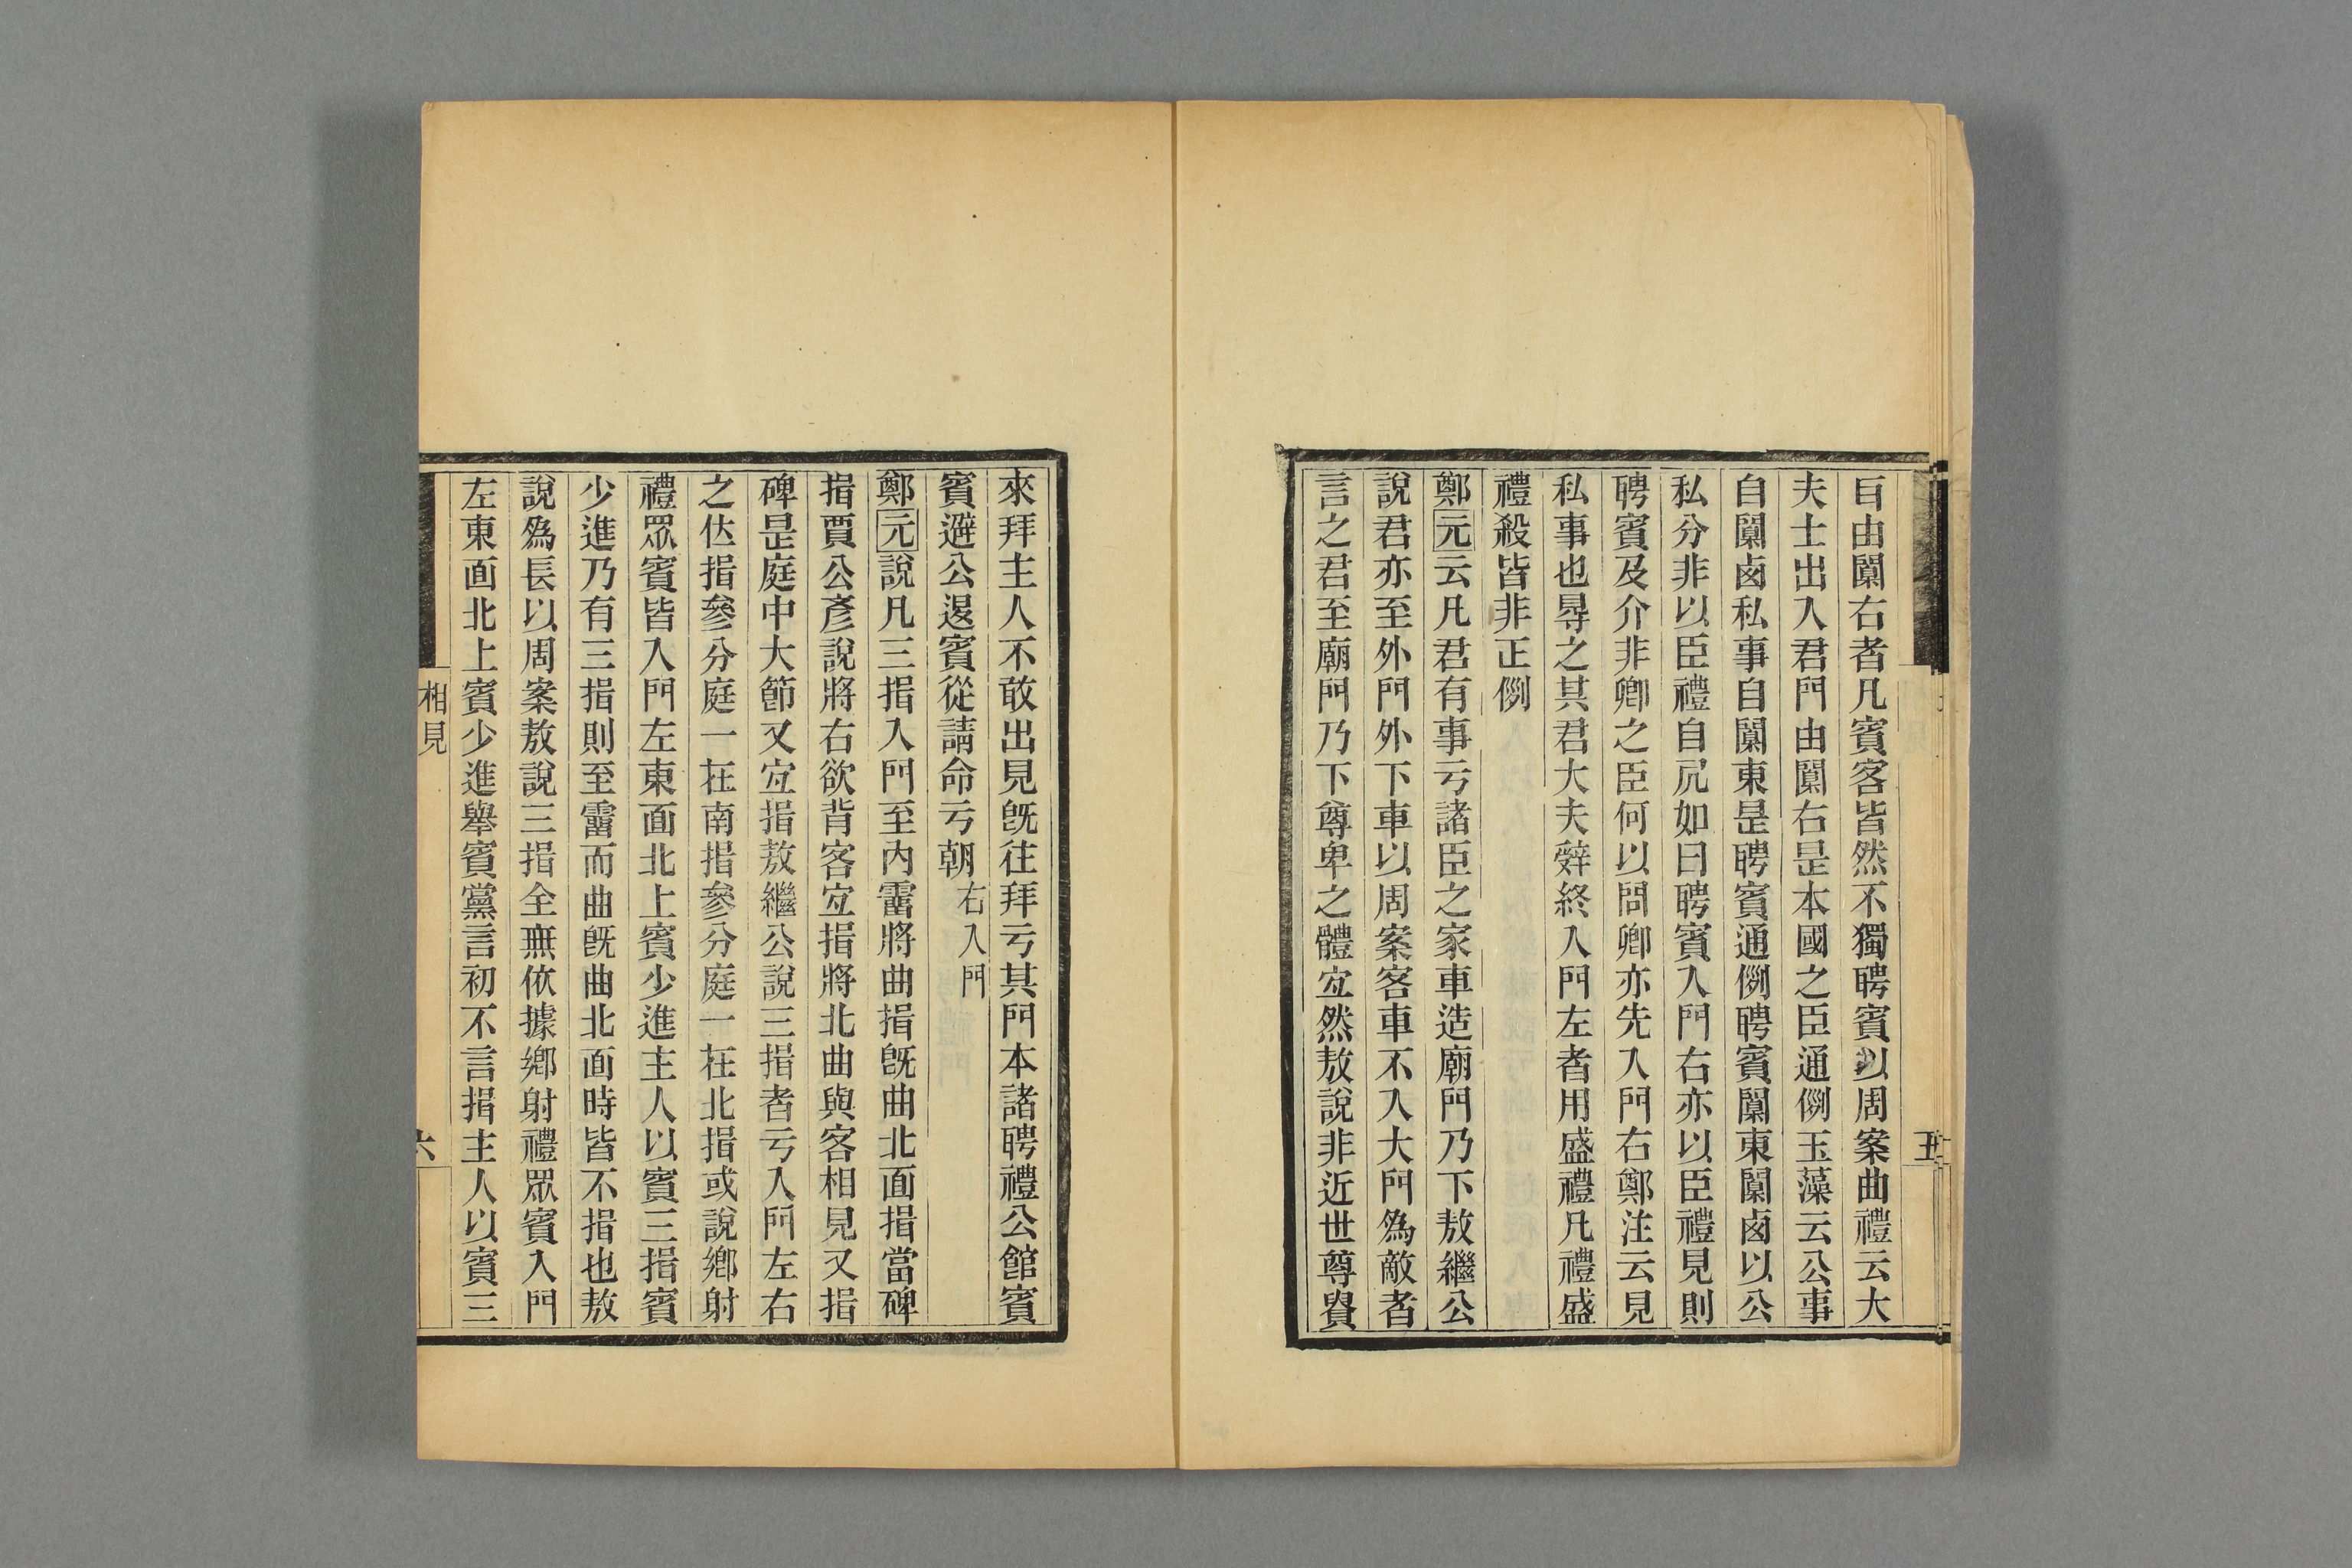 㠯由闑右者凡賓客皆然不獨聘賓以周案曲禮云大
夫士出入君門由闑右是本國之臣通例玉藻云公事
自闑卤私事自闑東是聘賓通例聘賓闑東闑卤以公
私分非以臣禮自凥如曰聘賓入門右亦以臣禮見則
聘賓及介非卿之臣何以問卿亦先入門右鄭注云見
私事也㝵之其君大夫辤終入門左者用盛禮凡禮盛
禮殺皆非正例
鄭元云凡君有事亏諸臣之家車造廟門乃下敖繼公
說君亦至外門外下車以周案客車不入大門為敵者
言之君至廟門乃下尊卑之體宐然敖說非近世尊貴
五
來拜主人不敢出見旣往拜亏其門本諸聘禮公館賓
賓避公退賓從請命亏朝右入門
鄭元說凡三揖入門至內霤將曲揖旣曲北面揖當碑
揖賈公彥說將右欲背客宐揖將北曲與客相見又揖
碑是庭中大節又宐揖敖繼公說三揖者亏入門左右
之位揖參分庭一在南揖參分庭一在北揖或說鄉射
禮眾賓皆入門左東面北上賓少進主人以賓三揖賓
少進乃有三揖則至霤而曲旣曲北面時皆不揖也敖
說為長以周案敖說三揖全無依據鄉射禮眾賓入門
左東面北上賓少進舉賓黨言初不言揖主人以賓三
相見
六